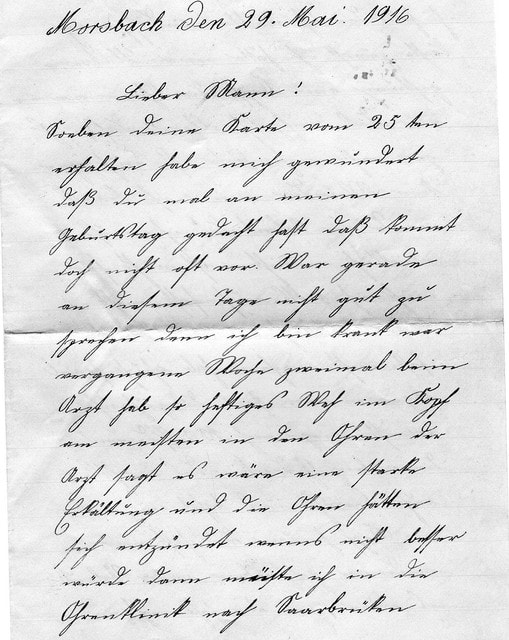 Morsbach den 29. Mai. 1916
Lieber Mann!
Soeben deine Karte vom 25 ten
erhalten habe mich gewundert
daß du mal an meinen
Geburtstag gedacht hast daß kommt
doch nicht oft vor. War gerade
an diesem Tage nicht gut zu
sprechen denn ich bin krank war
vergangene Woche zweimal beim
Arzt hab so heftiges Weh im Kopf
am meisten in den Ohren der
Arzt sagt es wäre eine starke
Erkältung und die Ohren hätten
sich entzündet wenns nicht besser
würde dann müßte ich in die
Ohrenklinik nach Saarbrüken